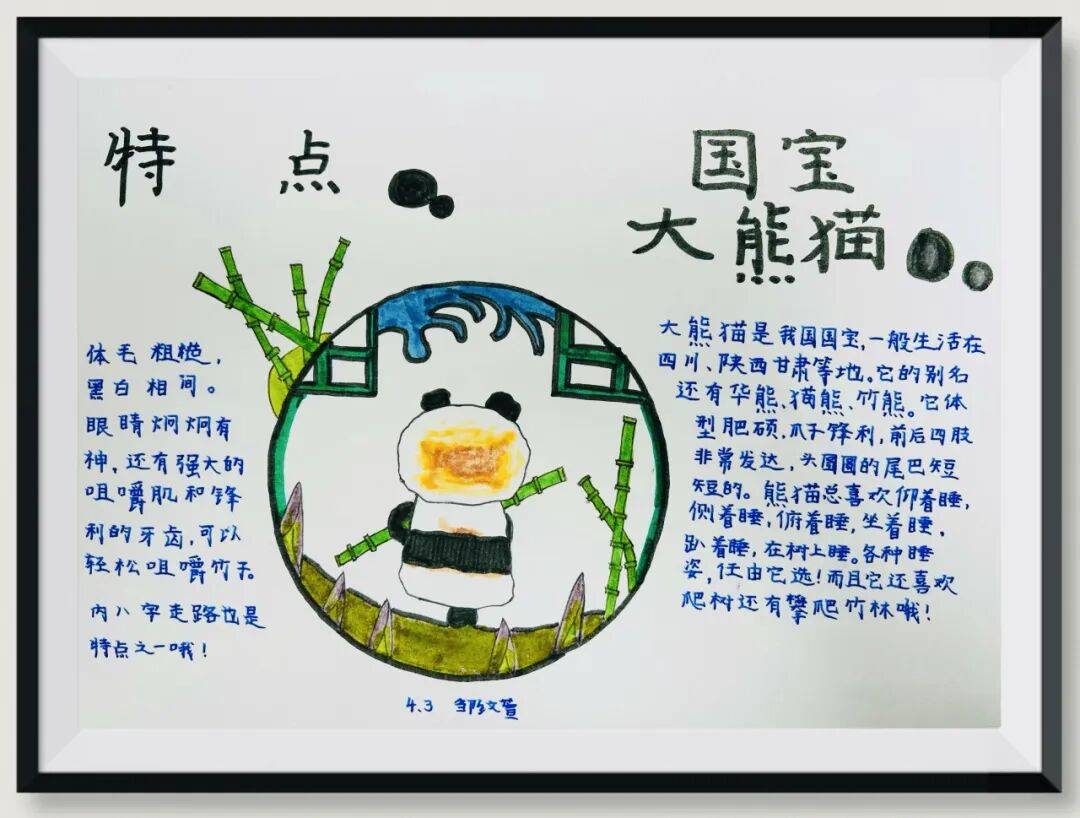 特 点
体毛粗糙，
黑白相间。
眼睛炯炯有
神，还有强大的
咀嚼肌和锋
利的牙齿，可以
轻松咀嚼竹子。
内八字走路也是
特点之一哦！
国宝
大熊猫
大熊猫是我国国宝，一般生活在
四川、陕西甘肃等地。它的别名
还有华熊、猫熊、竹熊。它体
型肥硕，爪子锋利，前后四肢
非常发达，头圆圆的尾巴短
短的。熊猫总喜欢仰着睡，
侧着睡，俯着睡，坐着睡，
趴着睡，在树上睡。各种睡
姿，任由它选！而且它还喜欢
爬树还有攀爬竹林哦！
4.3 邹纹萱